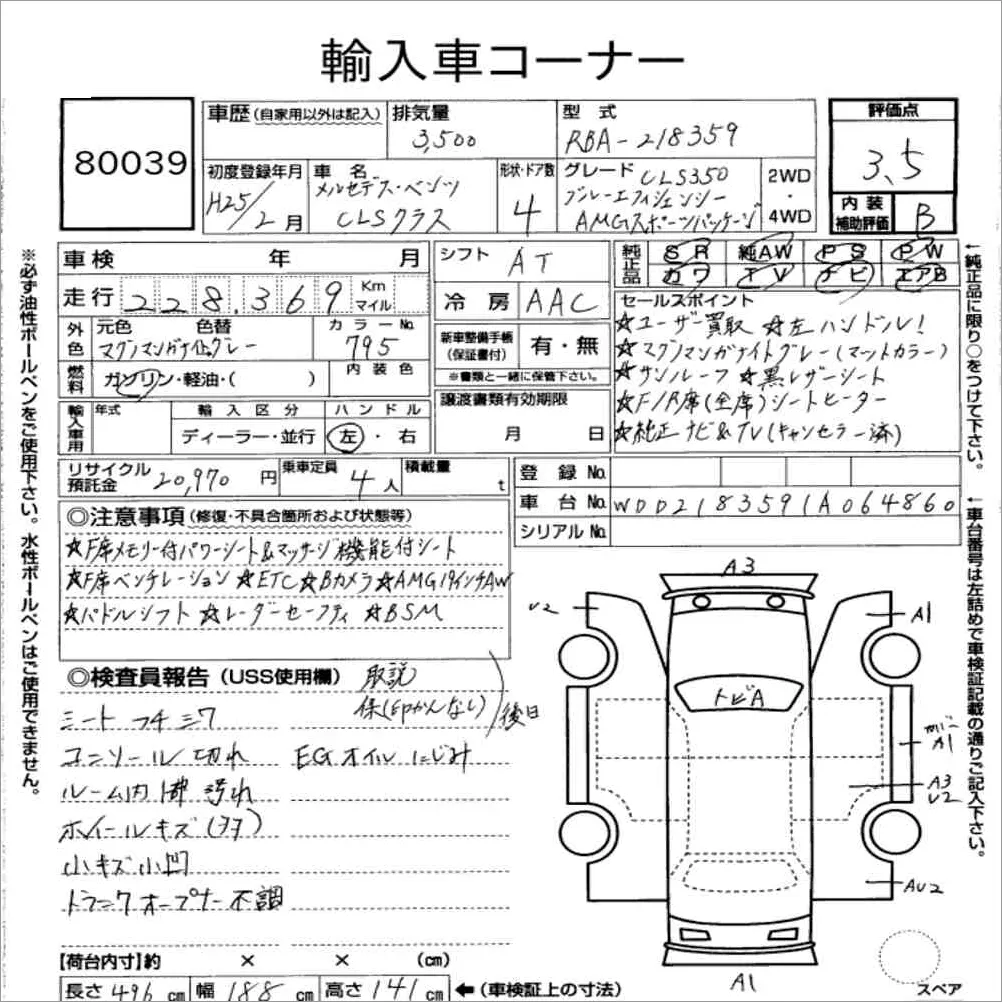 輸入車コーナー
80039
車歴 (自家用以外は記入)
排気量
3,500
型式
RBA-218359
評価点
3.5
初度登録年月
H25/2月
車名
メルセデス・ベンツ
CLSクラス
形状・ドア数
4
グレード CLS350
ブルーエフィシェンシー
AMGスポーツパッケージ
2WD
・
4WD
内装
補助評価
B
車検 年 月
シフト AT
純正品
SR 純AW PS PW
カワ TV ナビ エアB
走行 228,369 Km マイル
冷房 AAC
セールスポイント
☆ユーザー買取 ☆左ハンドル!
☆マグノマンガナイトグレー(マットカラー)
☆サンルーフ ☆黒レザーシート
☆F/R席(全席)シートヒーター
☆純正ナビ&TV(キャンセラー済)
外色
元色 色替
マグノマンガナイトグレー
カラーNo.
795
新車整備手帳
(保証書付)
有・無
※書類と一緒に保管下さい。
燃料
ガソリン・軽油・( )
内装色
譲渡書類有効期限
月 日
輸入車用
年式
輸入区分
ハンドル
ディーラー・並行
左・右
リサイクル
預託金
20,970円
乗車定員
4人
積載量
t
登録No.
車台No. WDD2183591A064860
シリアルNo.
◎注意事項 (修復・不具合箇所および状態等)
☆F席メモリー付パワーシート&マッサージ機能付シート
☆F席ベンチレーション ☆ETC ☆Bカメラ ☆AMG19インチAW
☆パドルシフト ☆レーダーセーフティ ☆BSM
◎検査員報告 (USS使用欄) 取説
保(印かんなし)
後日
シートフチミワ
コンソール切れ EGオイルにじみ
ルーム内 汚れ
ホイールキズ(タタ)
小キズ小凹
トランクオープナー不調
【荷台内寸】約 × × (cm)
長さ 496 cm 幅 188 cm 高さ 141 cm ←(車検証上の寸法)
※必ず油性ボールペンをご使用下さい。水性ボールペンはご使用できません。
←純正品に限り○をつけて下さい。
←車台番号は左詰めで車検証記載の通りご記入下さい。
A3
U2
A1
トビA
A1
A3
U2
AU2
A1
スペア